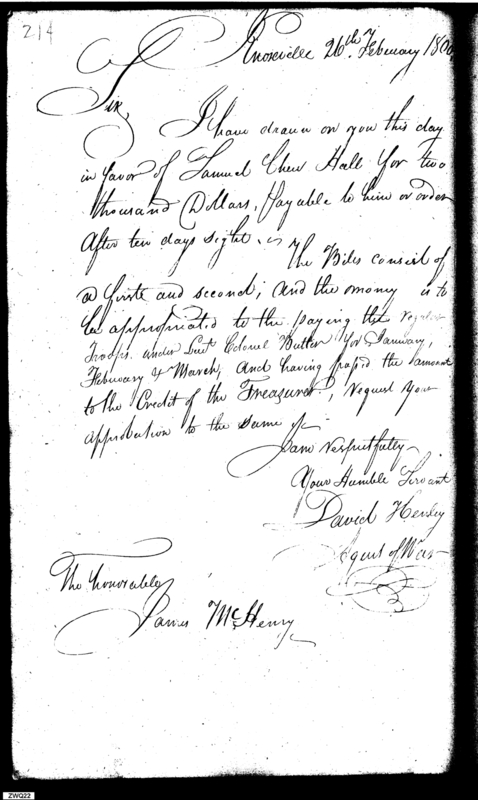 214
Knoxville 26th February 1800
Sir,
I have drawn on you this day
in favor of Samuel Chew Hall for two
thousand Dollars, Payable to him or order
After ten days sight.
The Biles consist of
a firste and second, and the money is to
be appropriated to the paying the regular
Troops under Lieut Colonel Butler for January,
February & March, and having pass'd the amount
to the Credit of the Treasurer, request your
approbation to the same
I am respectfully
Your Humble Servant
David Henley
Agent of War
The honorable
James McHenry
ZWQ22